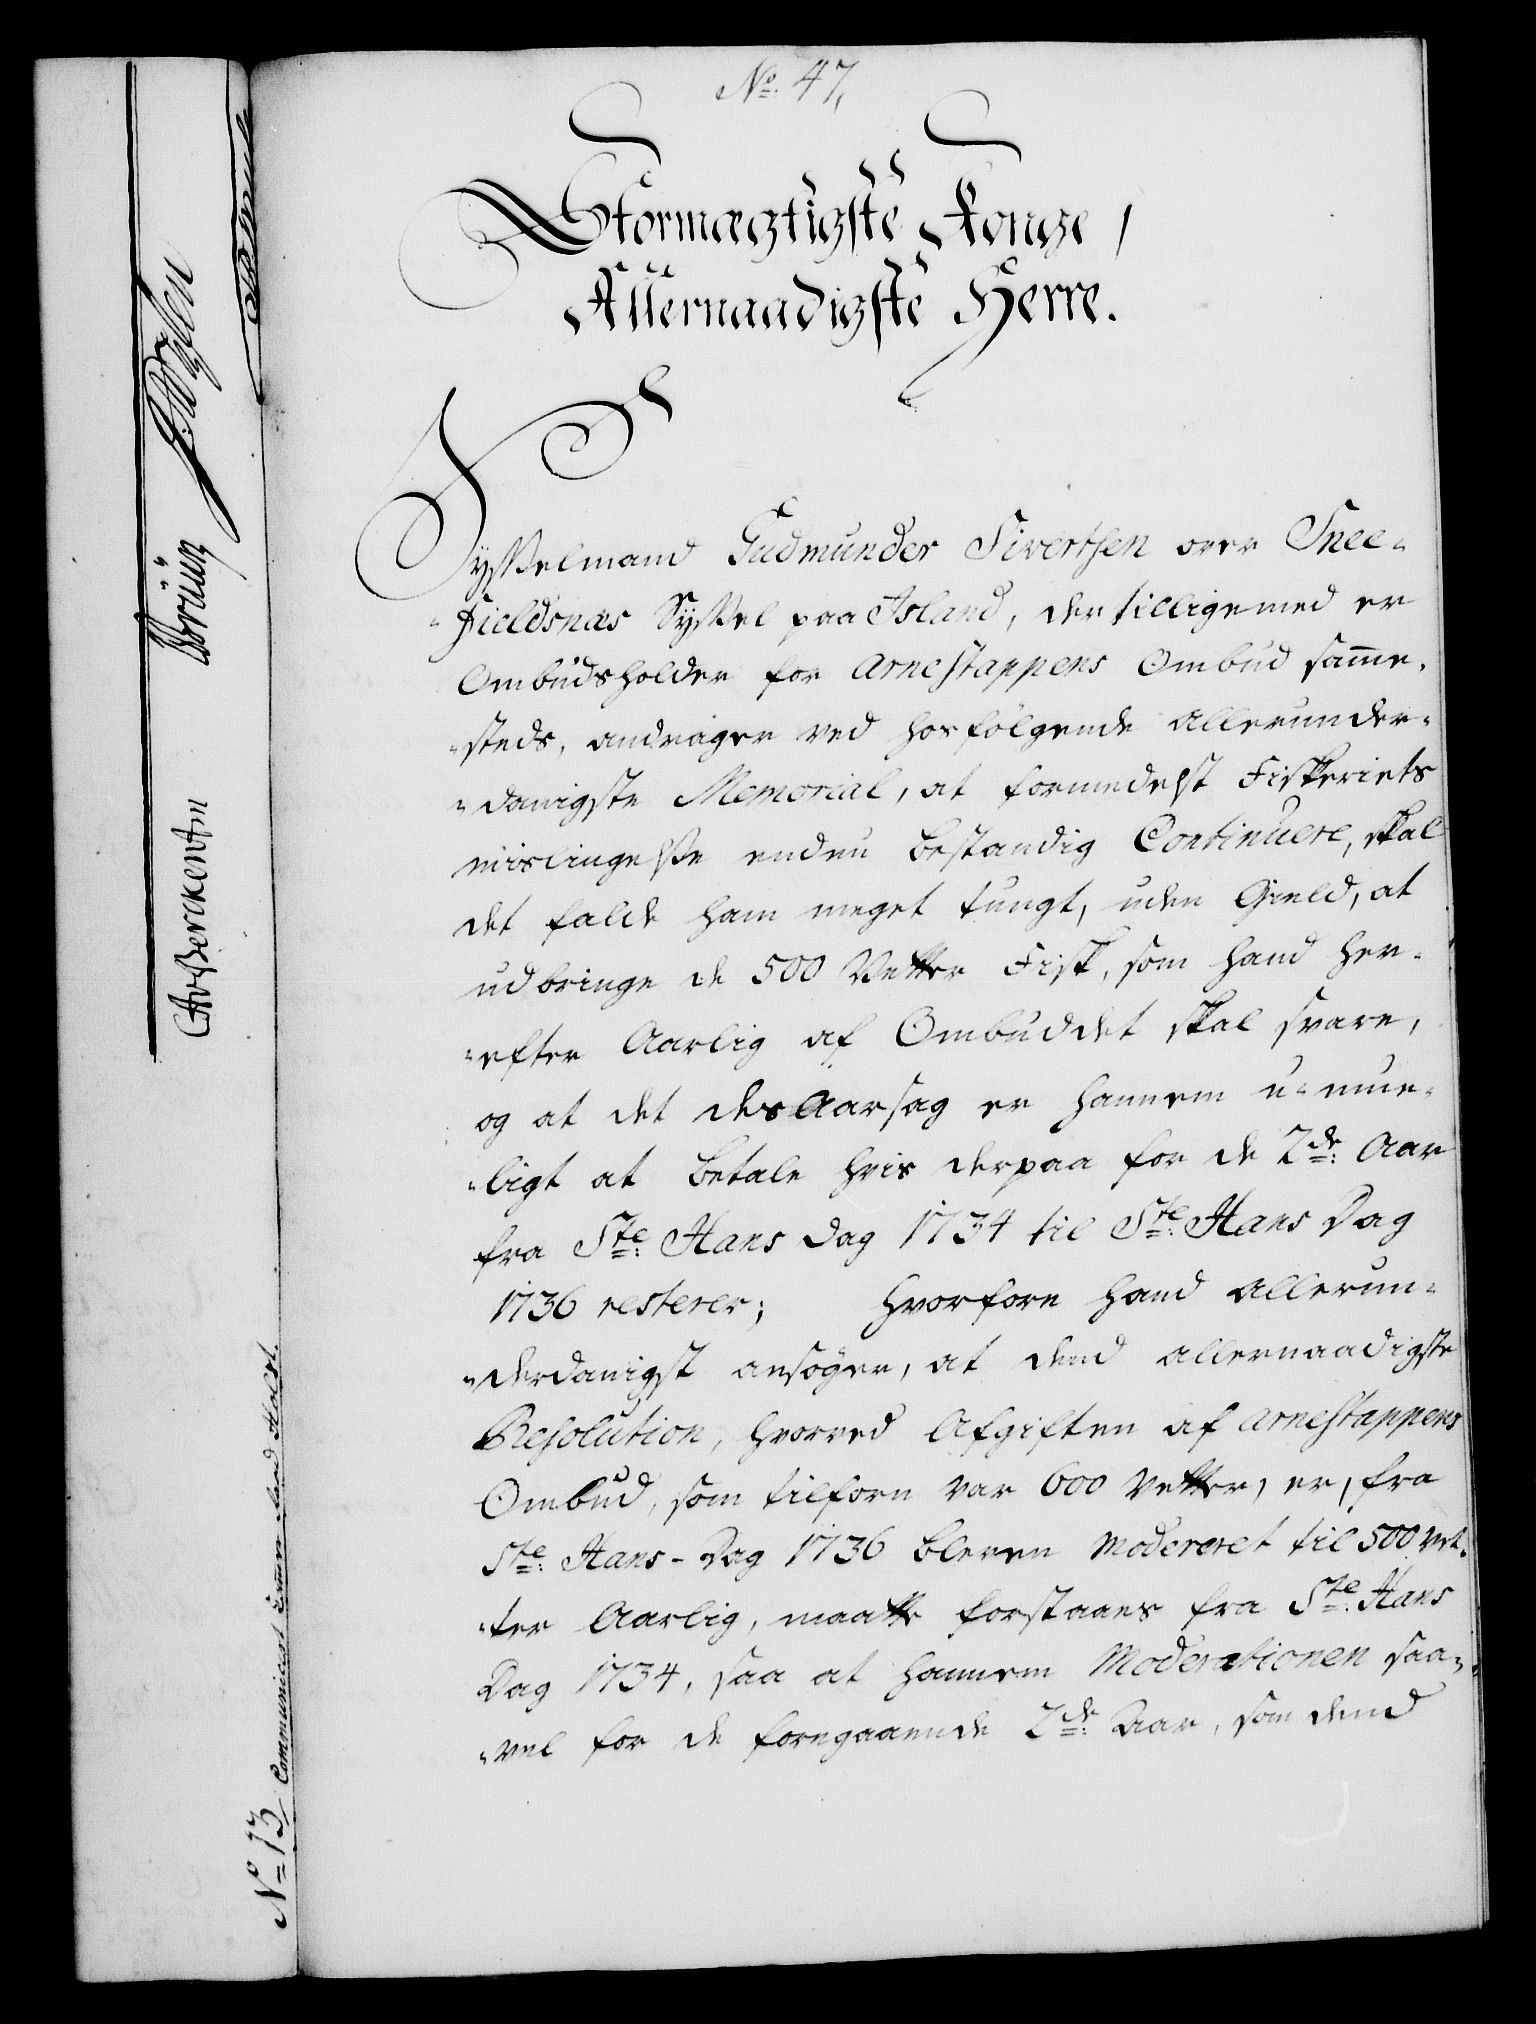 No. 47,
Stormægtigste Konge,
Allernaadigste Herre.
Sysselmand Gudmunder Sivertsen over Snee-
-fieldsnæs Syssel paa Island, der tilligemed er
Ombudsholder for Arnestappens Ombud samme-
-steds, andrager ved hosfølgende allerunder-
-danigste Memorial, at formedelst Fiskeriets
mislingelse endnu bestandig Continuere, skal
det falde ham meget tungt, uden Gield, at
udbringe de 500 Vetter Fisk, som hand her-
-efter Aarlig af Ombuddet skal svare,
og at det des Aarsag er hannem u-mue-
-ligt at betale hvis derpaa for de 2de: Aar
fra Ste: Hans Dag 1734 til Ste: Hans Dag
1736 resterer; hvorfore hand allerun-
-derdanigst ansøger, at dend allernaadigste
Resolution, hvorved Afgiften af Arnestappens
Ombud, som tilforn var 600 Vetter, er, fra
Ste: Hans-Dag 1736 bleven modereret til 500 Vet-
-ter Aarlig, maatte forstaaes fra Ste: Hans
Dag 1734, saa at hannem Moderationen saa-
-vel for de foregaaende 2de: Aar, som dend
No 13, Communicert Etatz Raad Holst.